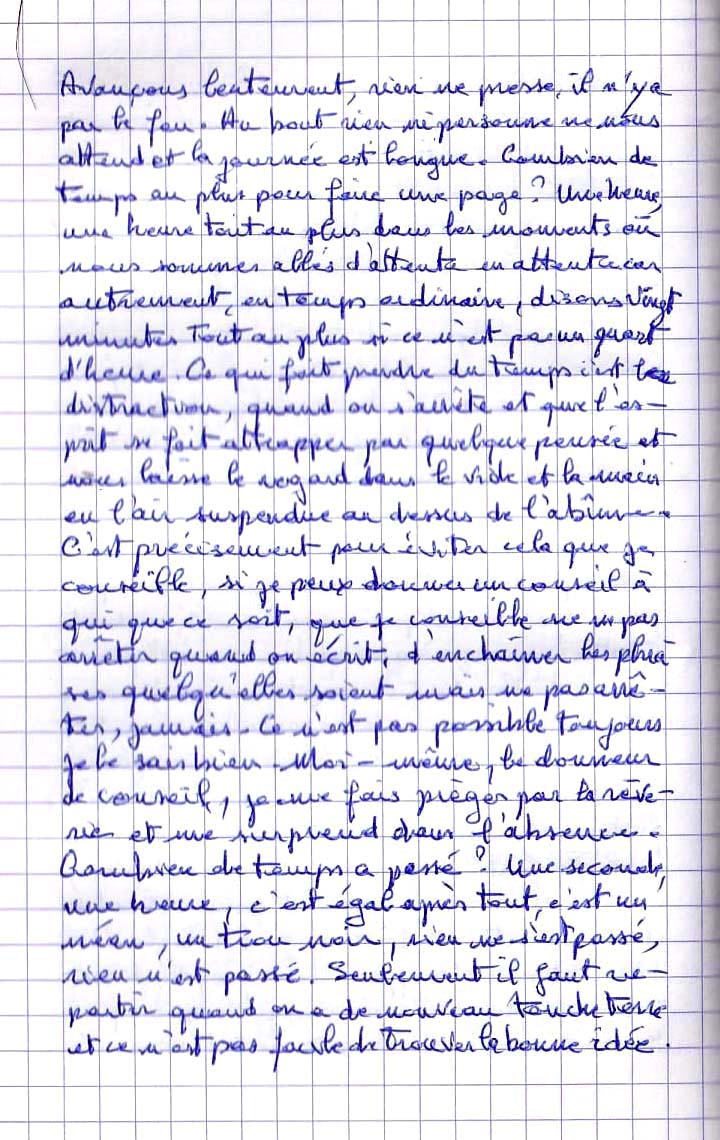 Avançons lentement, rien ne presse, il n'y a
pas le feu. Au bout rien ni personne ne nous
attend et la journée est longue. Combien de
temps au plus pour faire une page ? Une heure,
une heure tout au plus dans les moments où
nous sommes allés d'attente en attente car
autrement, en temps ordinaire, disons vingt
minutes tout au plus si ce n'est pas un quart
d'heure. Ce qui fait perdre du temps c'est les
distraction, quand on s'arrête et que l'es-
prit se fait attrapper par quelque pensée et
nous laisse le regard dans le vide et la main
en l'air suspendue au dessus de l'abîme.
C'est précisément pour éviter cela que je
conseille, si je peux donner un conseil à
qui que ce soit, que je conseille de ne pas
arrêter quand on écrit, d'enchaîner les phra
ses quelqu'elles soient mais ne pas arrê-
ter, jamais. Ce n'est pas possible toujours
je le sais bien. Moi-même, le donneur
de conseil, je me fais piéger par la rêve-
rie et me surprend dans l'absence.
Combien de temps a passé ? Une seconde,
une heure, c'est égal après tout, c'est un
néan, un trou noir, rien ne s'est passé,
rien n'est passé. Seulement il faut re-
partir quand on a de nouveau touché terre
et ce n'est pas facile de trouver la bonne idée.